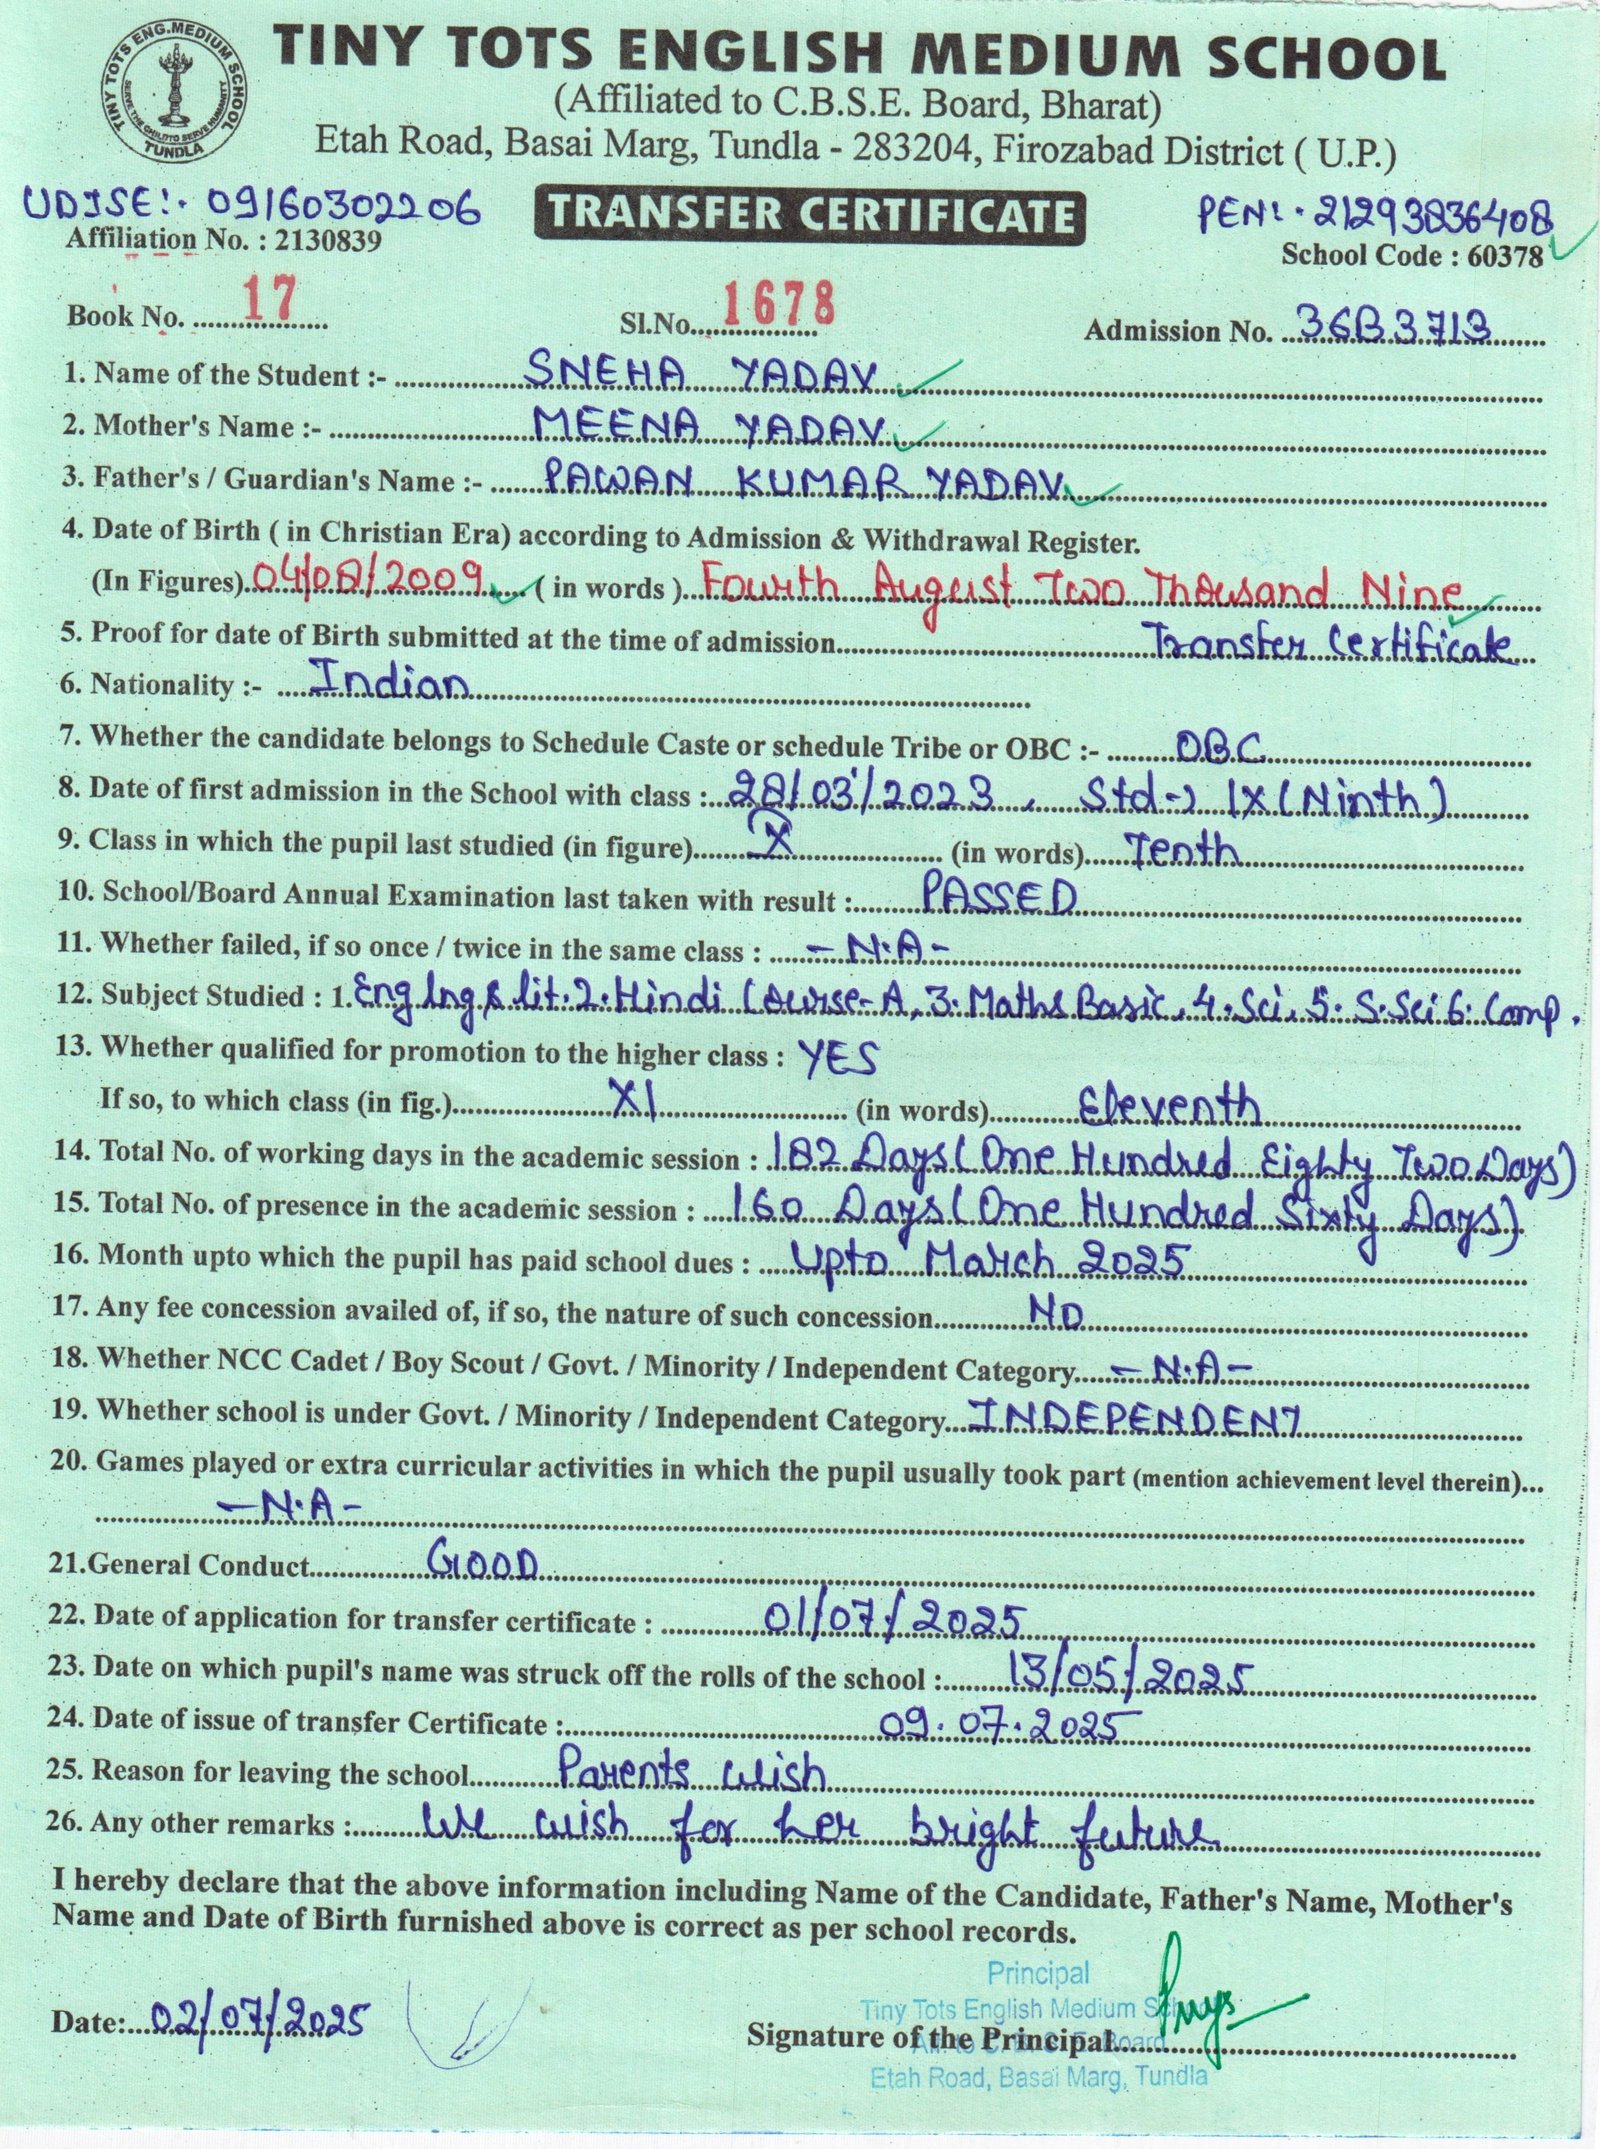 TINY TOTS ENG.MEDIUM SCHOOL
SERVE THE CHILD TO SERVE HUMANITY
TUNDLA
TINY TOTS ENGLISH MEDIUM SCHOOL
(Affiliated to C.B.S.E. Board, Bharat)
Etah Road, Basai Marg, Tundla - 283204, Firozabad District ( U.P.)
UDISE:- 09160302206 TRANSFER CERTIFICATE PEN:- 21293836408
Affiliation No. : 2130839 School Code : 60378
Book No. 17 Sl.No. 1678 Admission No. 36B3713
1. Name of the Student :- SNEHA YADAV
2. Mother's Name :- MEENA YADAV
3. Father's / Guardian's Name :- PAWAN KUMAR YADAV
4. Date of Birth ( in Christian Era) according to Admission & Withdrawal Register.
(In Figures) 04/08/2009 ( in words ) Fourth August Two Thousand Nine
5. Proof for date of Birth submitted at the time of admission Transfer Certificate
6. Nationality :- Indian
7. Whether the candidate belongs to Schedule Caste or schedule Tribe or OBC :- OBC
8. Date of first admission in the School with class : 28/03/2023, Std-> IX (Ninth)
9. Class in which the pupil last studied (in figure) X (in words) Tenth
10. School/Board Annual Examination last taken with result : PASSED
11. Whether failed, if so once / twice in the same class : -N.A-
12. Subject Studied : 1. Eng lng & lit. 2. Hindi Course-A, 3. Maths Basic, 4. Sci, 5. S.Sci 6. Comp.
13. Whether qualified for promotion to the higher class : YES
If so, to which class (in fig.) XI (in words) Eleventh
14. Total No. of working days in the academic session : 182 Days (One Hundred Eighty Two Days)
15. Total No. of presence in the academic session : 160 Days (One Hundred Sixty Days)
16. Month upto which the pupil has paid school dues : Upto March 2025
17. Any fee concession availed of, if so, the nature of such concession NO
18. Whether NCC Cadet / Boy Scout / Govt. / Minority / Independent Category -N.A-
19. Whether school is under Govt. / Minority / Independent Category INDEPENDENT
20. Games played or extra curricular activities in which the pupil usually took part (mention achievement level therein)...
-N.A-
21.General Conduct GOOD
22. Date of application for transfer certificate : 01/07/2025
23. Date on which pupil's name was struck off the rolls of the school : 13/05/2025
24. Date of issue of transfer Certificate : 09.07.2025
25. Reason for leaving the school Parents wish
26. Any other remarks : We wish for her bright future
I hereby declare that the above information including Name of the Candidate, Father's Name, Mother's
Name and Date of Birth furnished above is correct as per school records.
Principal
Tiny Tots English Medium
Date: 02/07/2025 Signature of the Principal
Board
Etah Road, Basai Marg, Tundla